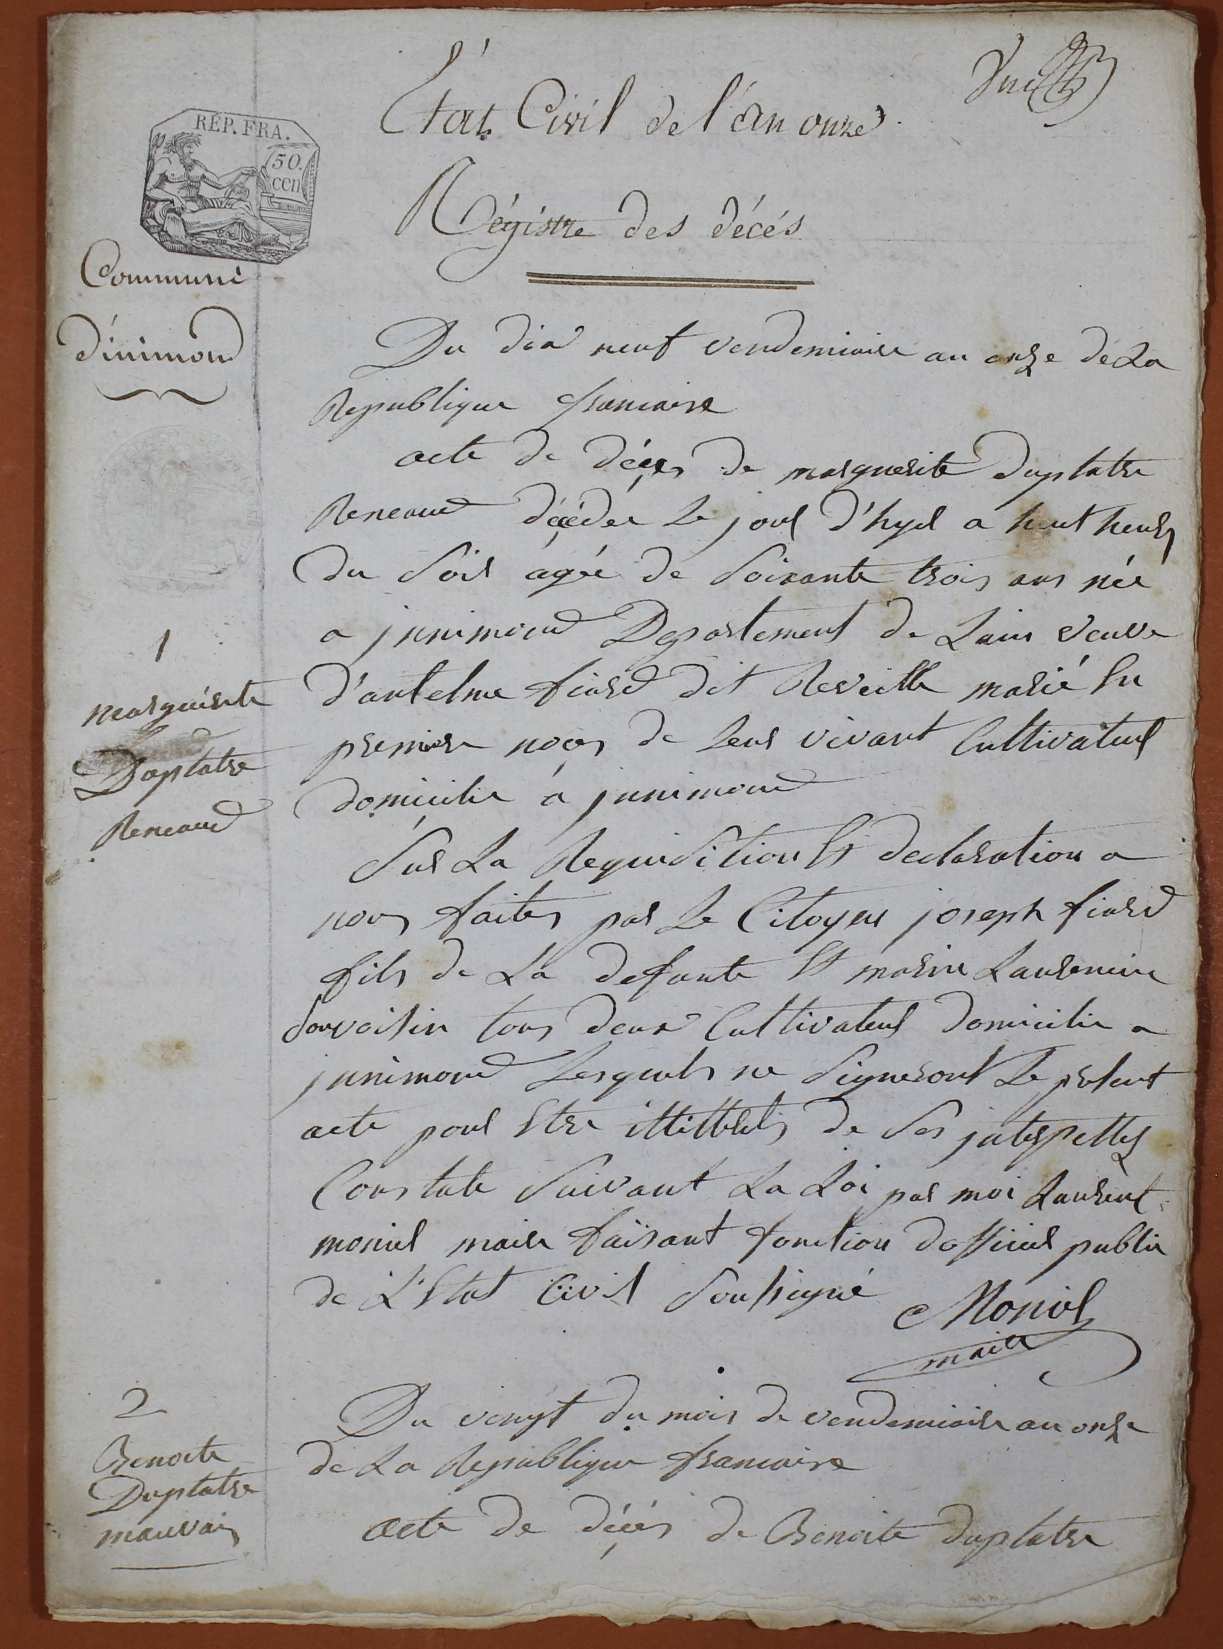 Etat Civil de l'an onze
Régistre des décés
RÉP. FRA.
50.
cen
Commune
d'inimond
Du dix neuf vendemiaire au onze de La
Republique francaise
acte de décés de marguerite duplatre
Reneaud décédée Le jour d'hyer a huit heures
du Soir ágée de Soixante trois ans née
a jnnimond Departement de Lain veuve
d'antelme fiard dit Reveille marié En
premiere noces de Leur vivant Cultivateur
domicilie á jnnimond
1
marguérite
Duplatre
Reneaud
Sur La Requisition Et declaration a
nous faites par Le Citoyen joseph fiard
fils de La defunte Et marin Laurencin
Son voisin tous deux Cultivateurs domicilie a
jnnimond Lesquels ne Signeront Le present
acte pour Etre illitterés de Ses jnterpelles
Constate Suivant La Loi par moi Laurent
moniel maire faisant fonction dofficier public
de L'Etat Civil Soussigné
Moniel
maire
2
Benoite
Duplatre
mauvais
Du vingt du mois de vendemiaire au onze
de La Republique francaise
acte de décés de Benoite duplatre